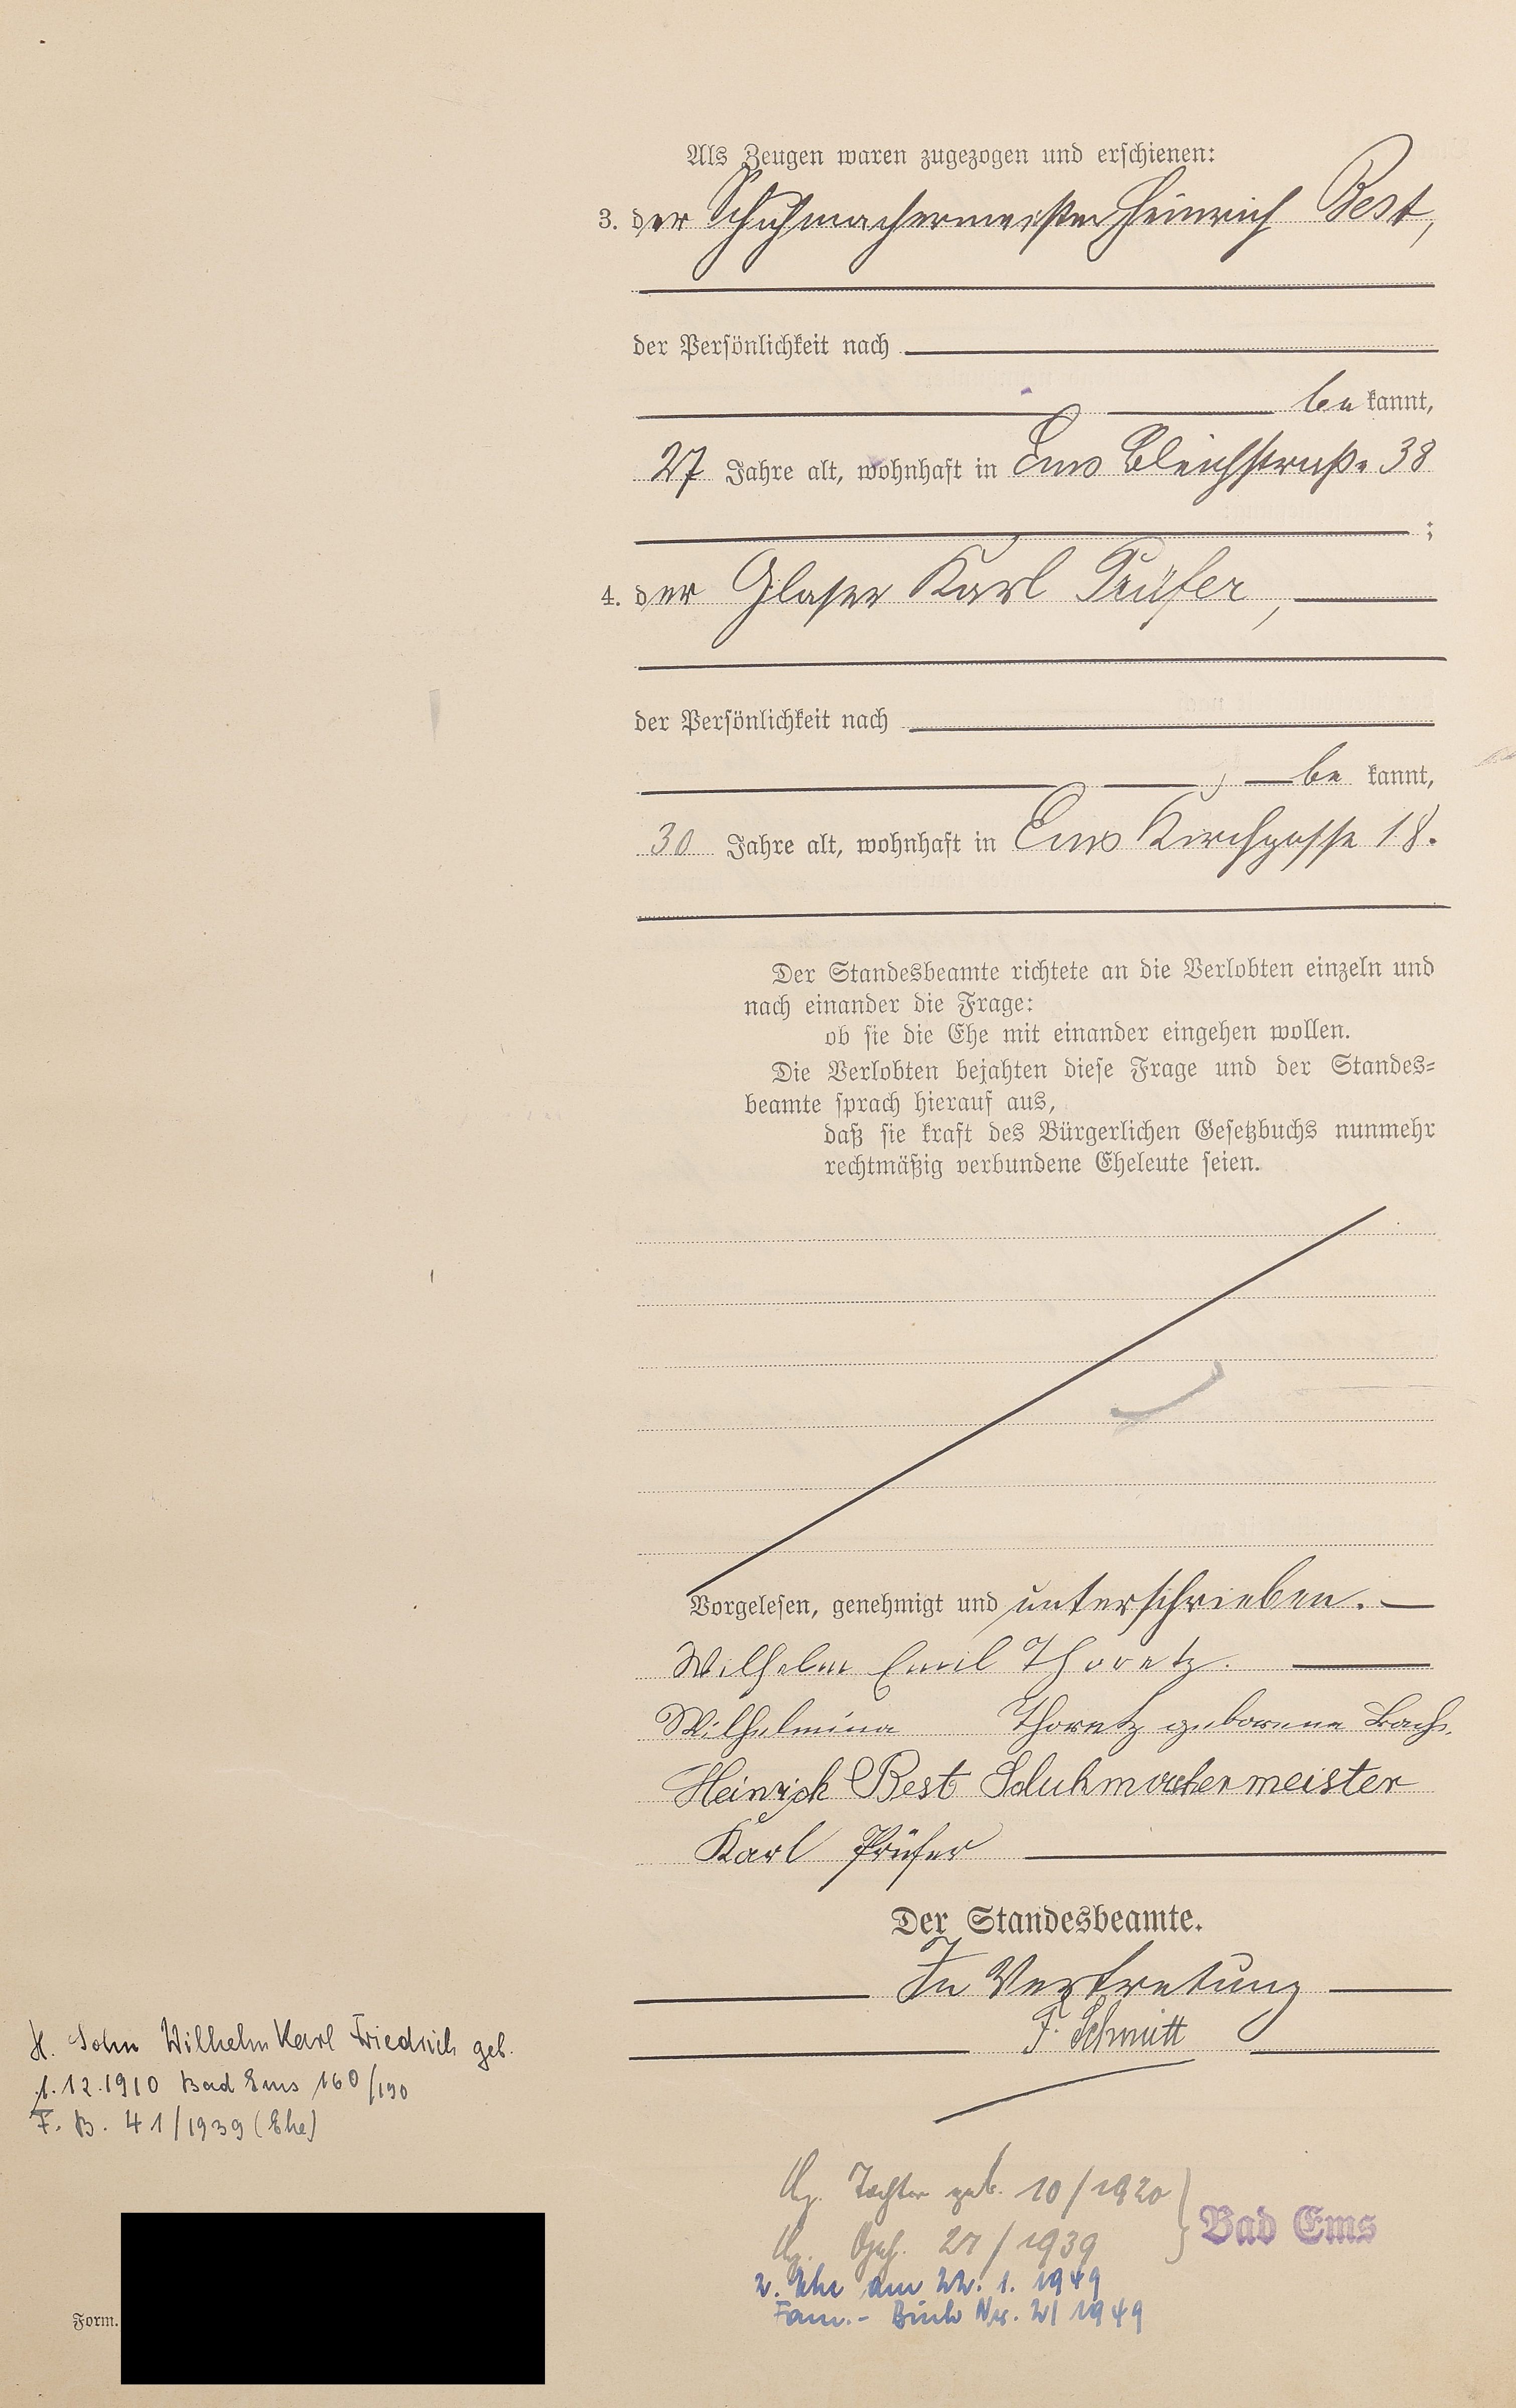 Als Zeugen waren zugezogen und erschienen:
3. der Schuhmachermeister Heinrich Best,
der Persönlichkeit nach
be kannt,
27 Jahre alt, wohnhaft in Ems Bleichstraße 38
;
4. der Glaser Karl Prüfer,
der Persönlichkeit nach
be kannt,
30 Jahre alt, wohnhaft in Ems Kirchgasse 18.
Der Standesbeamte richtete an die Verlobten einzeln und
nach einander die Frage:
ob sie die Ehe mit einander eingehen wollen.
Die Verlobten bejahten diese Frage und der Standes-
beamte sprach hierauf aus,
daß sie kraft des Bürgerlichen Gesetzbuchs nunmehr
rechtmäßig verbundene Eheleute seien.
Vorgelesen, genehmigt und unterschrieben.
Wilhelm Emil Thoretz.
Wilhelmina Thoretz geborene Bach.
Heinrich Best Schuhmachermeister
Karl Prüfer
Der Standesbeamte.
In Vertretung
F. Schmitt
H. Sohn Wilhelm Karl Friedrich geb.
1.12.1910 Bad Ems 160/190
F. B. 41/1939 (Ehe)
Tochter geb. 10/1920
27/1939
Bad Ems
2. Ehe am 22. 1. 1949
Fam.- Buch Nr. 2/1949
Form.